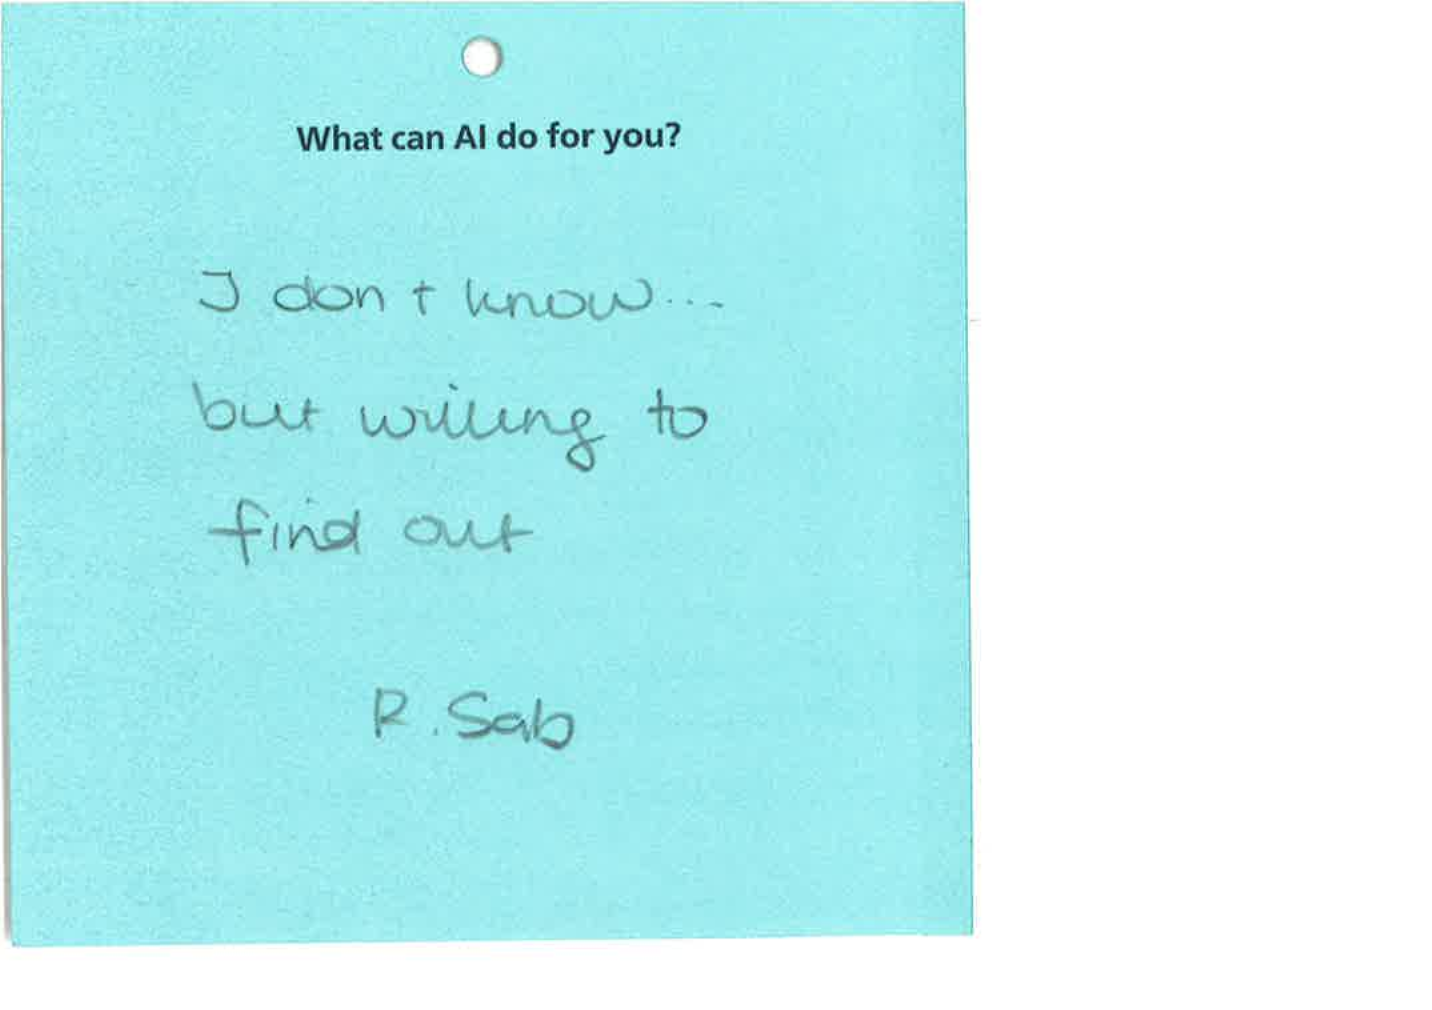 What can AI do for you?
I don't know...
but willing to
find out
R. Sab